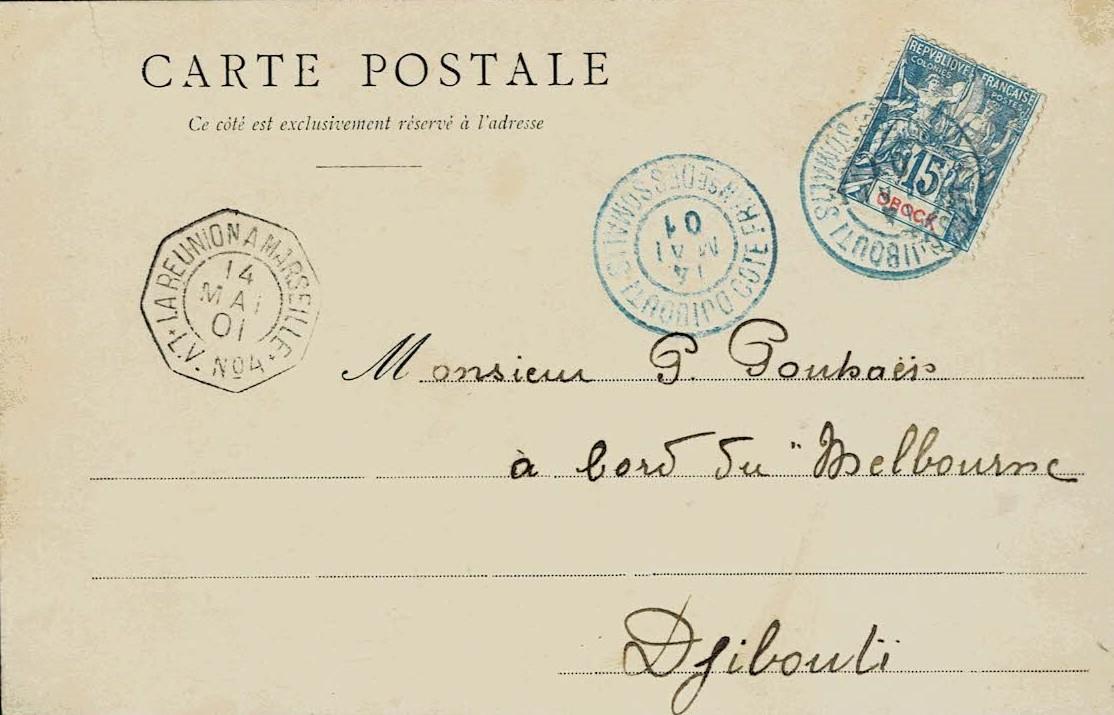 CARTE POSTALE
Ce côté est exclusivement réservé à l'adresse
REPVBLIQVE FRANÇAISE
COLONIES POSTES
15
OBOCK
DJIBOUTI SOMALIS
DJIBOUTI COTE FR DES SOMALIS
14
MAI
01
LA REUNION A MARSEILLE
14
MAI
01
L.V. No4
Monsieur G.
à bord du "Melbourne
Djibouti